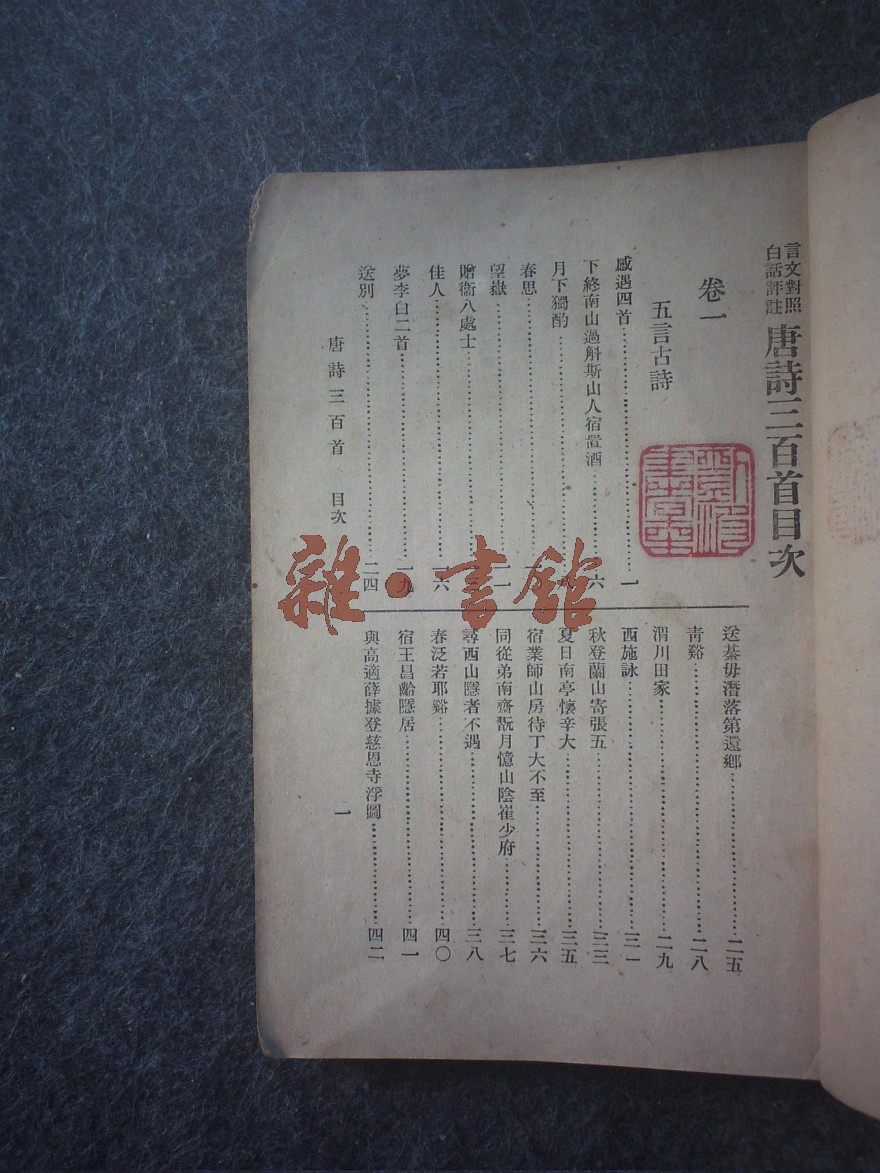 言文對照
白話評註
唐詩三百首目次
卷一
五言古詩
感遇四首……一
下終南山過斛斯山人宿置酒……六
月下獨酌……
春思……
望嶽……
贈衞八處士……
佳人……一六
夢李白二首……一九
送別……二四
送綦毋潛落第還鄉……二五
靑谿……二八
渭川田家……二九
西施詠……三一
秋登蘭山寄張五……三三
夏日南亭懷辛大……三五
宿業師山房待丁大不至……三六
同從弟南齋翫月憶山陰崔少府……三七
尋西山隱者不遇……三八
春泛若耶谿……四〇
宿王昌齡隱居……四一
與高適薛據登慈恩寺浮圖……四二
唐詩三百首 目次
一
雜·書館